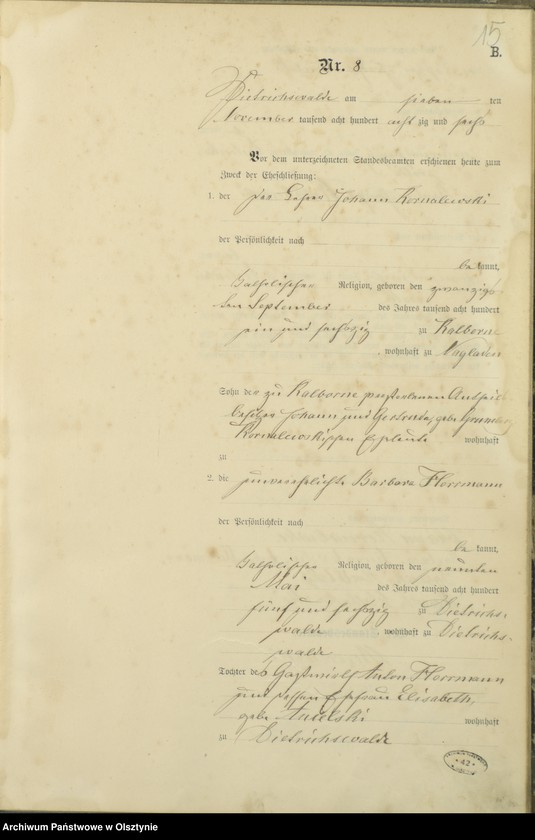 15
B.
Nr. 8
Dietrichswalde am sieben ten
November tausend acht hundert acht zig und sechs
Vor dem unterzeichneten Standesbeamten erschienen heute zum
Zweck der Eheschließung:
1. der der Lehrer Johann Kornalewski
der Persönlichkeit nach
be kannt,
katholischer Religion, geboren den zwanzig-
sten September des Jahres tausend acht hundert
ein und sechszig zu Kalborno
, wohnhaft zu Nagladen
Sohn der zu Kalborno verstorbenen Antheil-
besitzer Johann und Gertruda, geb.
Kornalewskischen Eheleute wohnhaft
zu
2. die unverehelichte Barbara Herrmann
der Persönlichkeit nach
be kannt,
katholischer Religion, geboren den neunten
Mai des Jahres tausend acht hundert
fünf und sechszig zu Dietrichs-
walde, wohnhaft zu Dietrichs-
walde
Tochter des Gastwirth Anton Herrmann
und dessen Ehefrau Elisabeth,
gebr. wohnhaft
zu Dietrichswalde
42
Archiwum Państwowe w Olsztynie